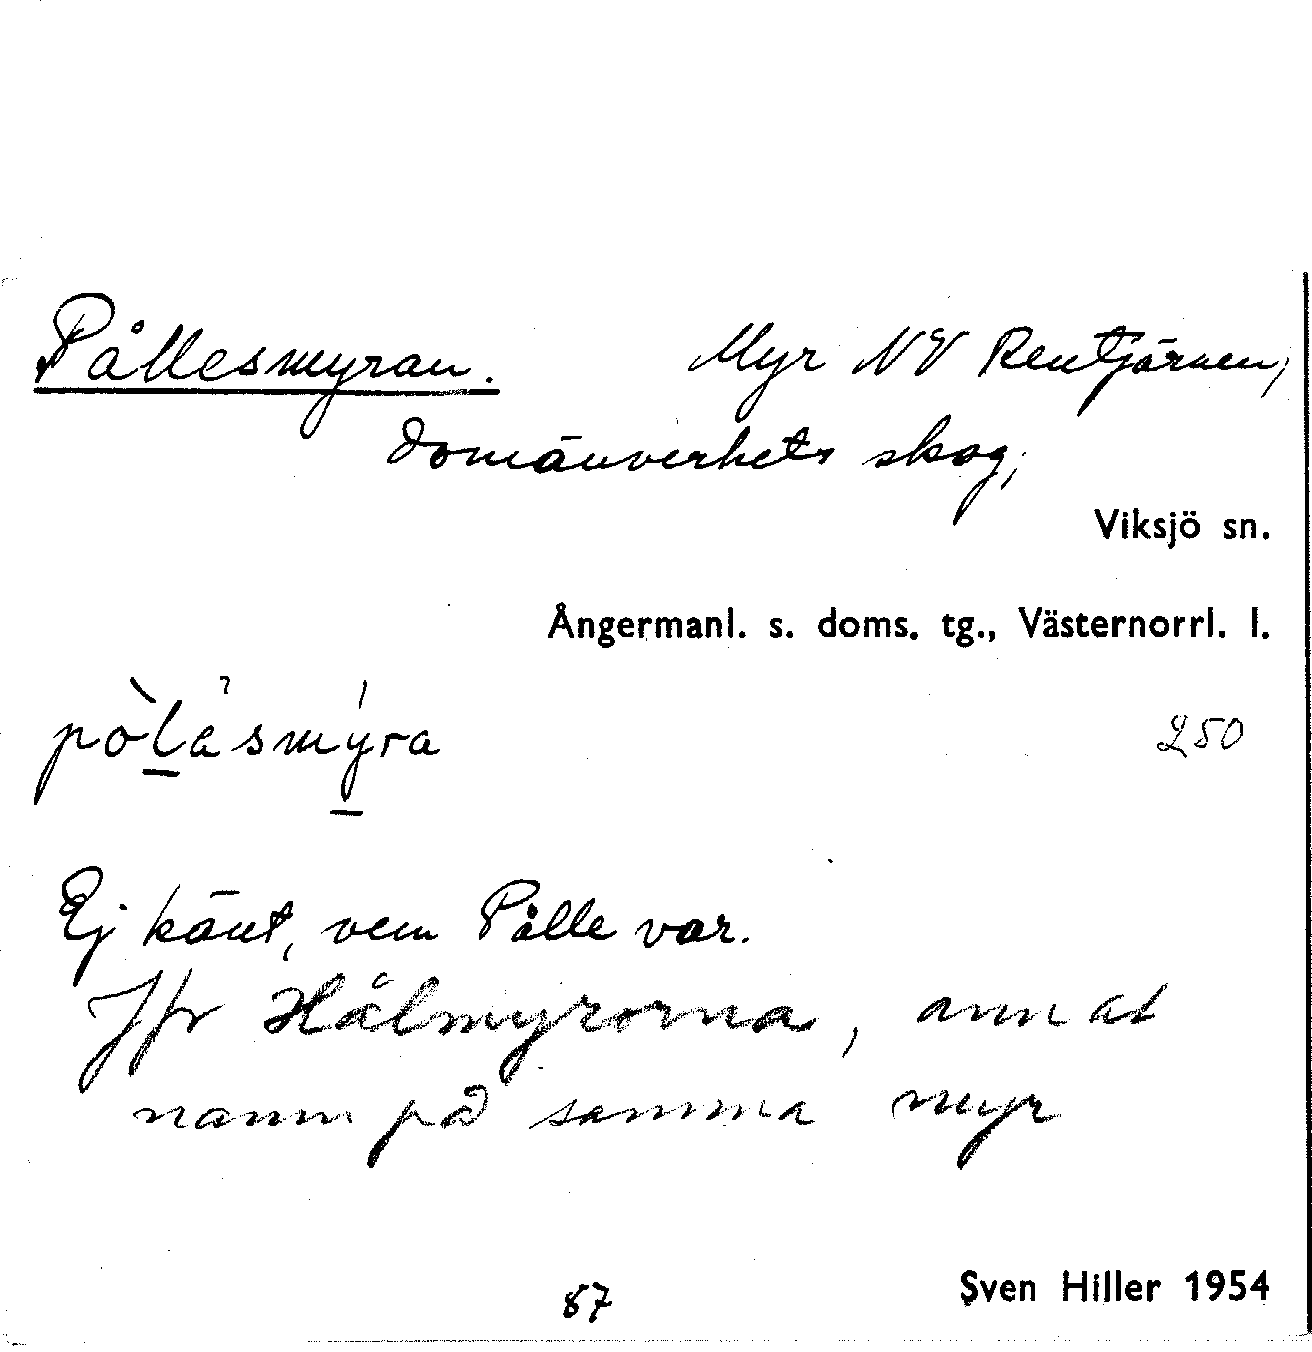 Pållesmyran. Myr NV Rentjärnen,
domänverkets skog,
Viksjö sn.
Ångermanl. s. doms. tg., Västernorrl. l.
250
Ej känt, vem Pålle var.
Jfr Hålmyrorna, annat
namn på samma myr
87 Sven Hiller 1954